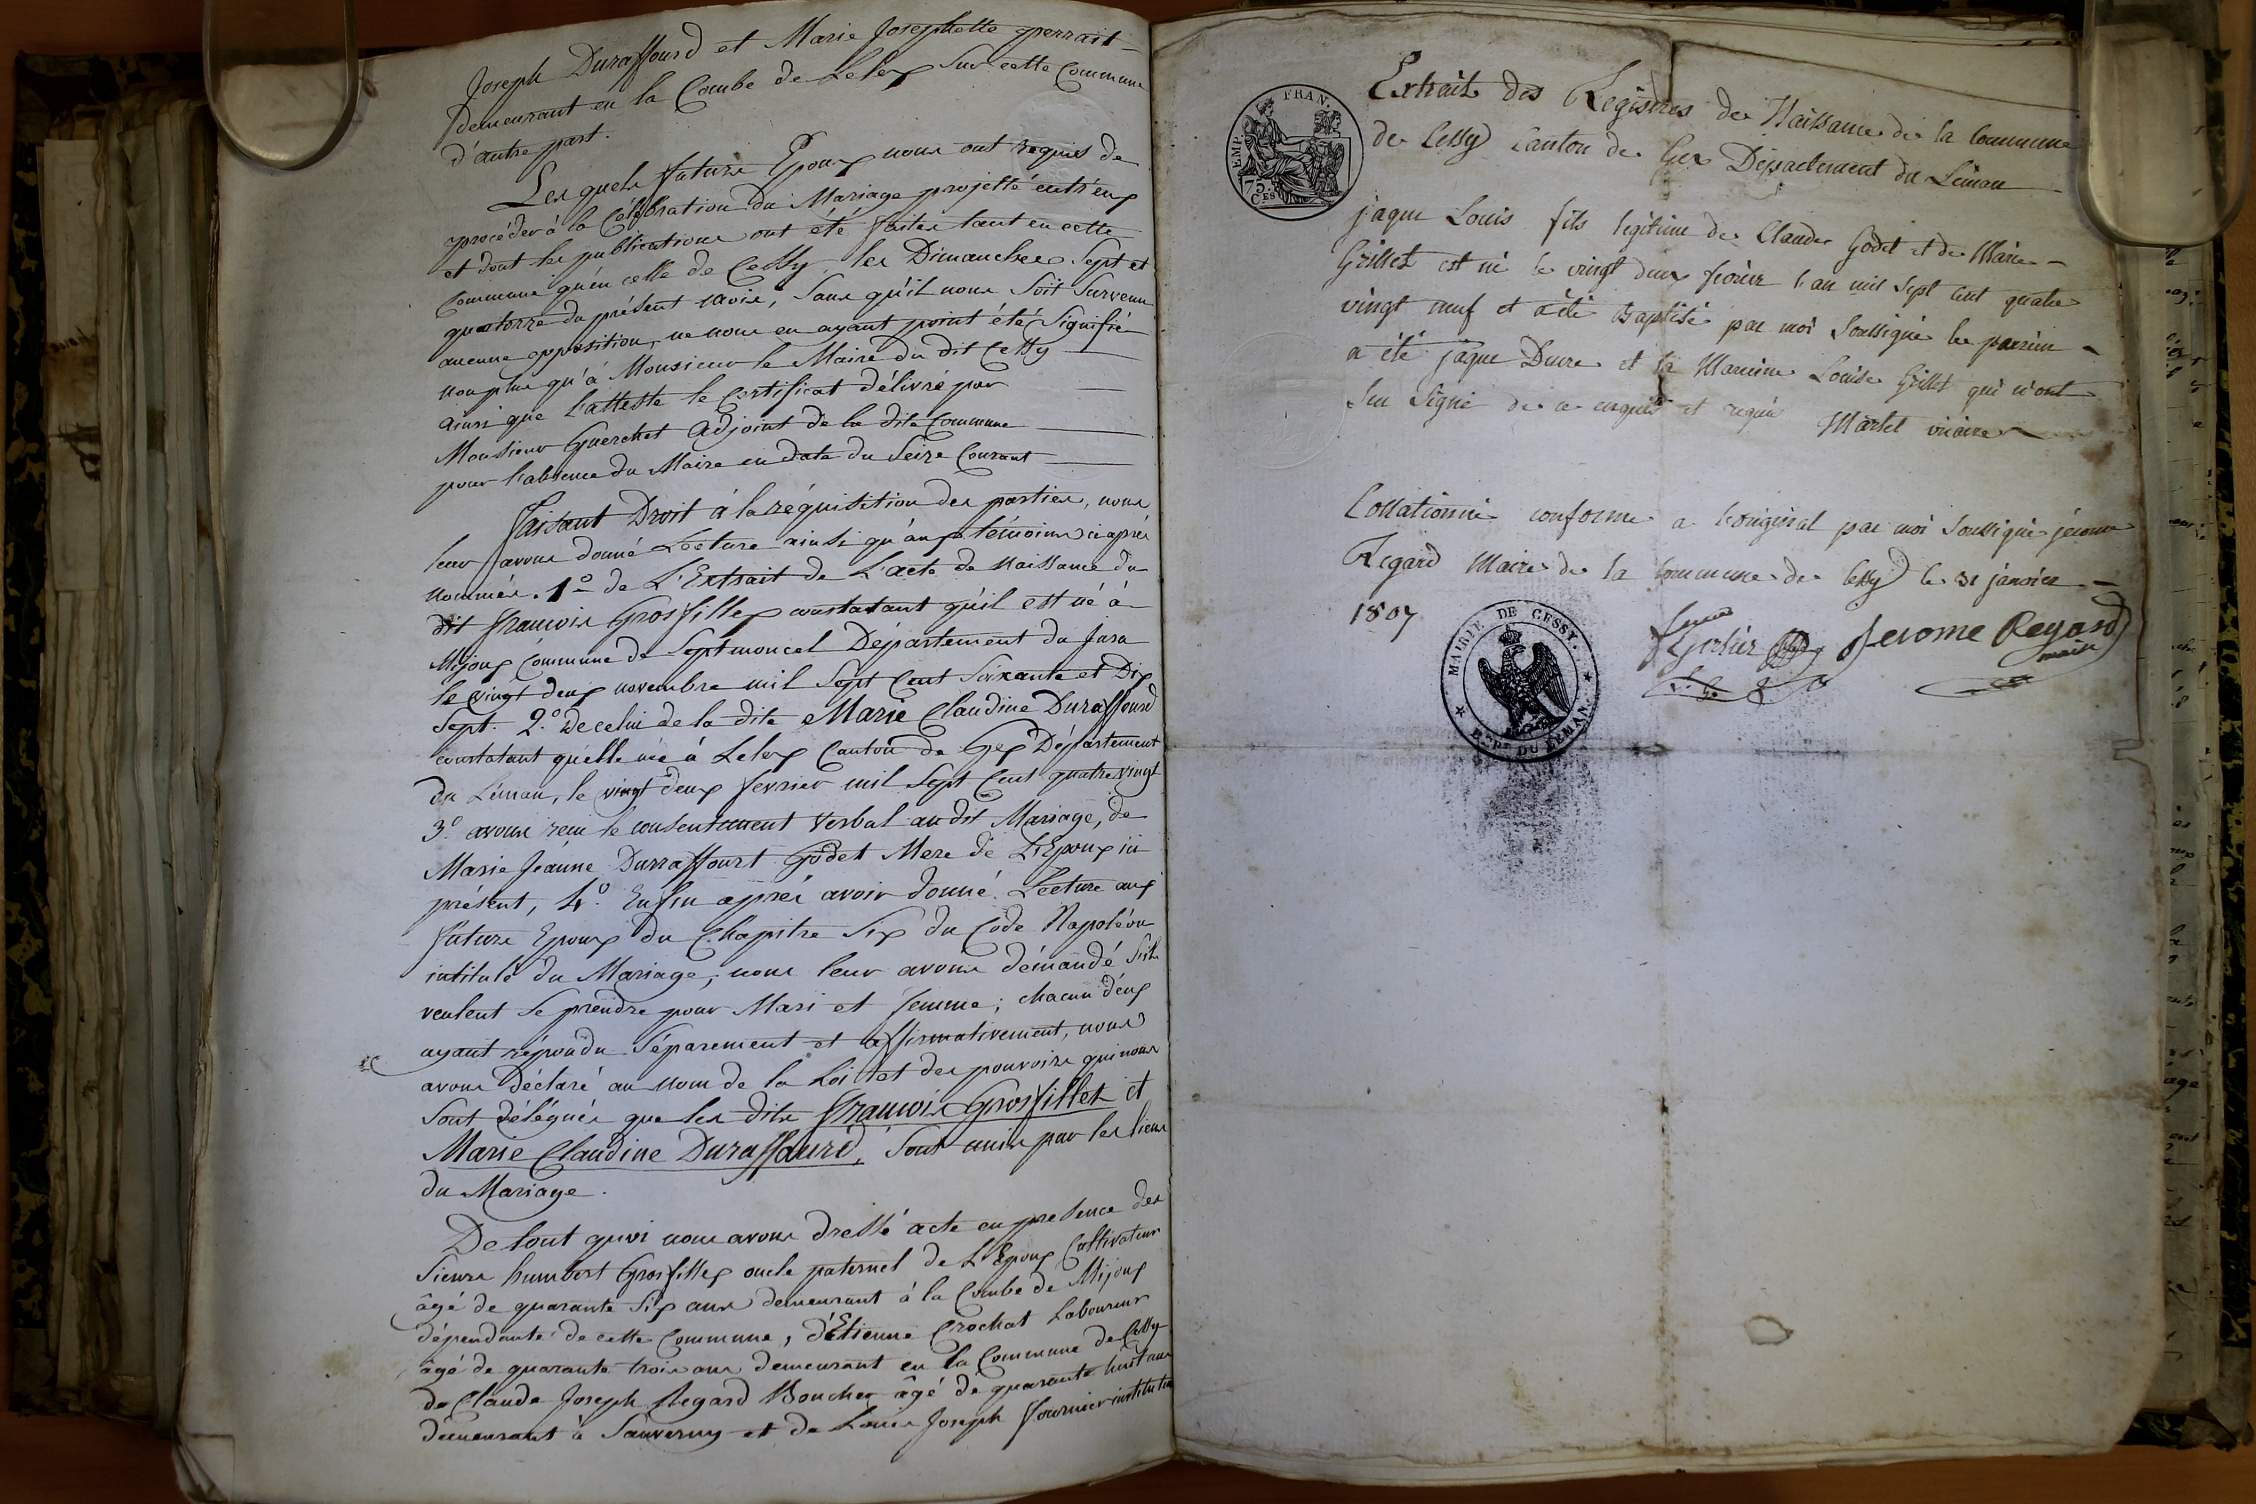 Joseph Duraffourd et Marie Josephette perrait
demeurant en la Combe de Lelex sur cette Commune
d'autre part.
Lesquels futurs Epoux nous ont requis de
procéder à la Célébration du Mariage projetté entr'eux
et dont les publications ont été faites tant en cette
Commune qu'en celle de Cessy, les Dimanches Sept et
quatorze du présent mois, Sans qu'il nous Soit Survenu
aucune opposition, ne nous en ayant point été Signifié
non plus qu'à Monsieur le Maire du dit Cessy
ainsi que l'atteste le Certificat délivré par
Monsieur Guerchet Adjoint de la dite Commune
pour l'absence du Maire en date du Seize Courant
Faisant Droit à la réquisition des parties, nous
leur avons donné Lecture ainsi qu'aux témoins ci après
nommés. 1° de L'Extrait de L'acte de Naissance du
dit François Grosfillex constatant qu'il est né à
Mijoux Commune de Septmoncel Département du Jura
le vingt deux novembre mil Sept Cent Soixante et Dix
Sept. 2° De celui de la dite Marie Claudine Duraffourd
constatant qu'elle née à Lelex Canton de Gex Département
du Léman, le vingt deux fevrier mil Sept Cent quatre vingt
3° avons recu le consentement Verbal au dit Mariage, de
Marie Jeanne Durraffourt Godet Mere de L'Epoux ici
présent, 4° Enfin après avoir donné Lecture aux
futurs Epoux du Chapitre Six du Code Napoléon
intitulé du Mariage, nous leur avons démandé S'ils
veulent Se prendre pour Mari et femme; chacun d'eux
ayant répondu Séparement et affirmativement, nous
avons Déclaré au nom de la Loi et des pouvoirs qui nous
Sont délégués que les dits François Grosfillex et
Marie Claudine Duraffourd, Sont unis par les liens
du Mariage.
De tout quoi nous avons dressé acte en presence des
Sieurs humbert Grosfillex oncle paternel de L'Epoux Cultivateur
âgé de quarante Six ans demeurant à la Combe de Mijoux
dépendante de cette Commune, d'Etienne Crochat Laboureur
âgé de quarante trois ans demeurant en la Commune de Cessy
de Claude Joseph Regard Boucher âgé de quarante huit ans
demeurant à Sauverny et de Louis Joseph Fournier instituteur
EMP. FRAN.
75 CES
Extrait des Registres de Naissance de la Commune
de Cessy Canton de Gex Département du Léman
jaque Louis fils légitime de Claude Godet et de Marie
Grillet est né le vingt deux fevrier l'an mil Sept Cent quatre
vingt neuf et a été Baptisé par moi Soussigné le parrein
a été jaque Ducre et la Marraine Louise Grillet qui n'ont
Su Signé de ce enquis et requis Martel vicaire
Collationné conforme a l'original par moi Soussigné jérome
Regard Maire de la Commune de Cessy le 31 janvier
1807
Jerome Regard
maire
MAIRIE DE CESSY.
DU LEMAN.